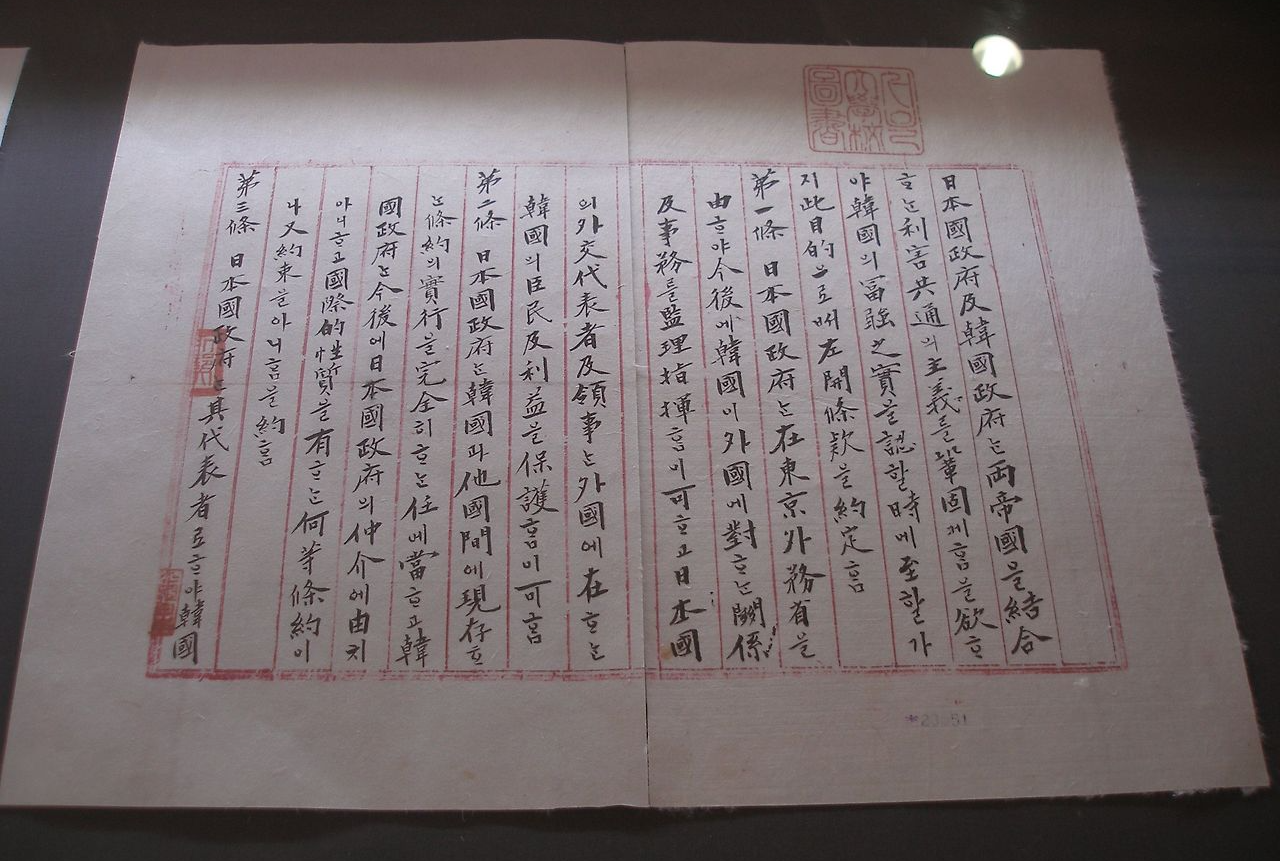 서울
大學校
圖書
日本國政府及韓國政府는兩帝國을結合
ᄒᆞ는利害共通의主義를鞏固케ᄒᆞᆷ을欲ᄒᆞ
야韓國의富强之實을認할時에至할가
지此目的으로써左開條款을約定ᄒᆞᆷ
第一條 日本國政府는在東京外務省을
由ᄒᆞ야今後에韓國이外國에對ᄒᆞ는關係
及事務를監理指揮ᄒᆞᆷ이可ᄒᆞ고日本國
의外交代表者及領事는外國에在ᄒᆞ는
韓國의臣民及利益을保護ᄒᆞᆷ이可ᄒᆞᆷ
第二條 日本國政府는韓國과他國間에現存ᄒᆞ
는條約의實行을完全히ᄒᆞ는任에當ᄒᆞ고韓
國政府는今後에日本國政府의仲介에由치
아니ᄒᆞ고國際的性質을有ᄒᆞ는何等條約이
나又約束을아니ᄒᆞᆷ을約ᄒᆞᆷ
第三條 日本國政府는其代表者로ᄒᆞ야韓國